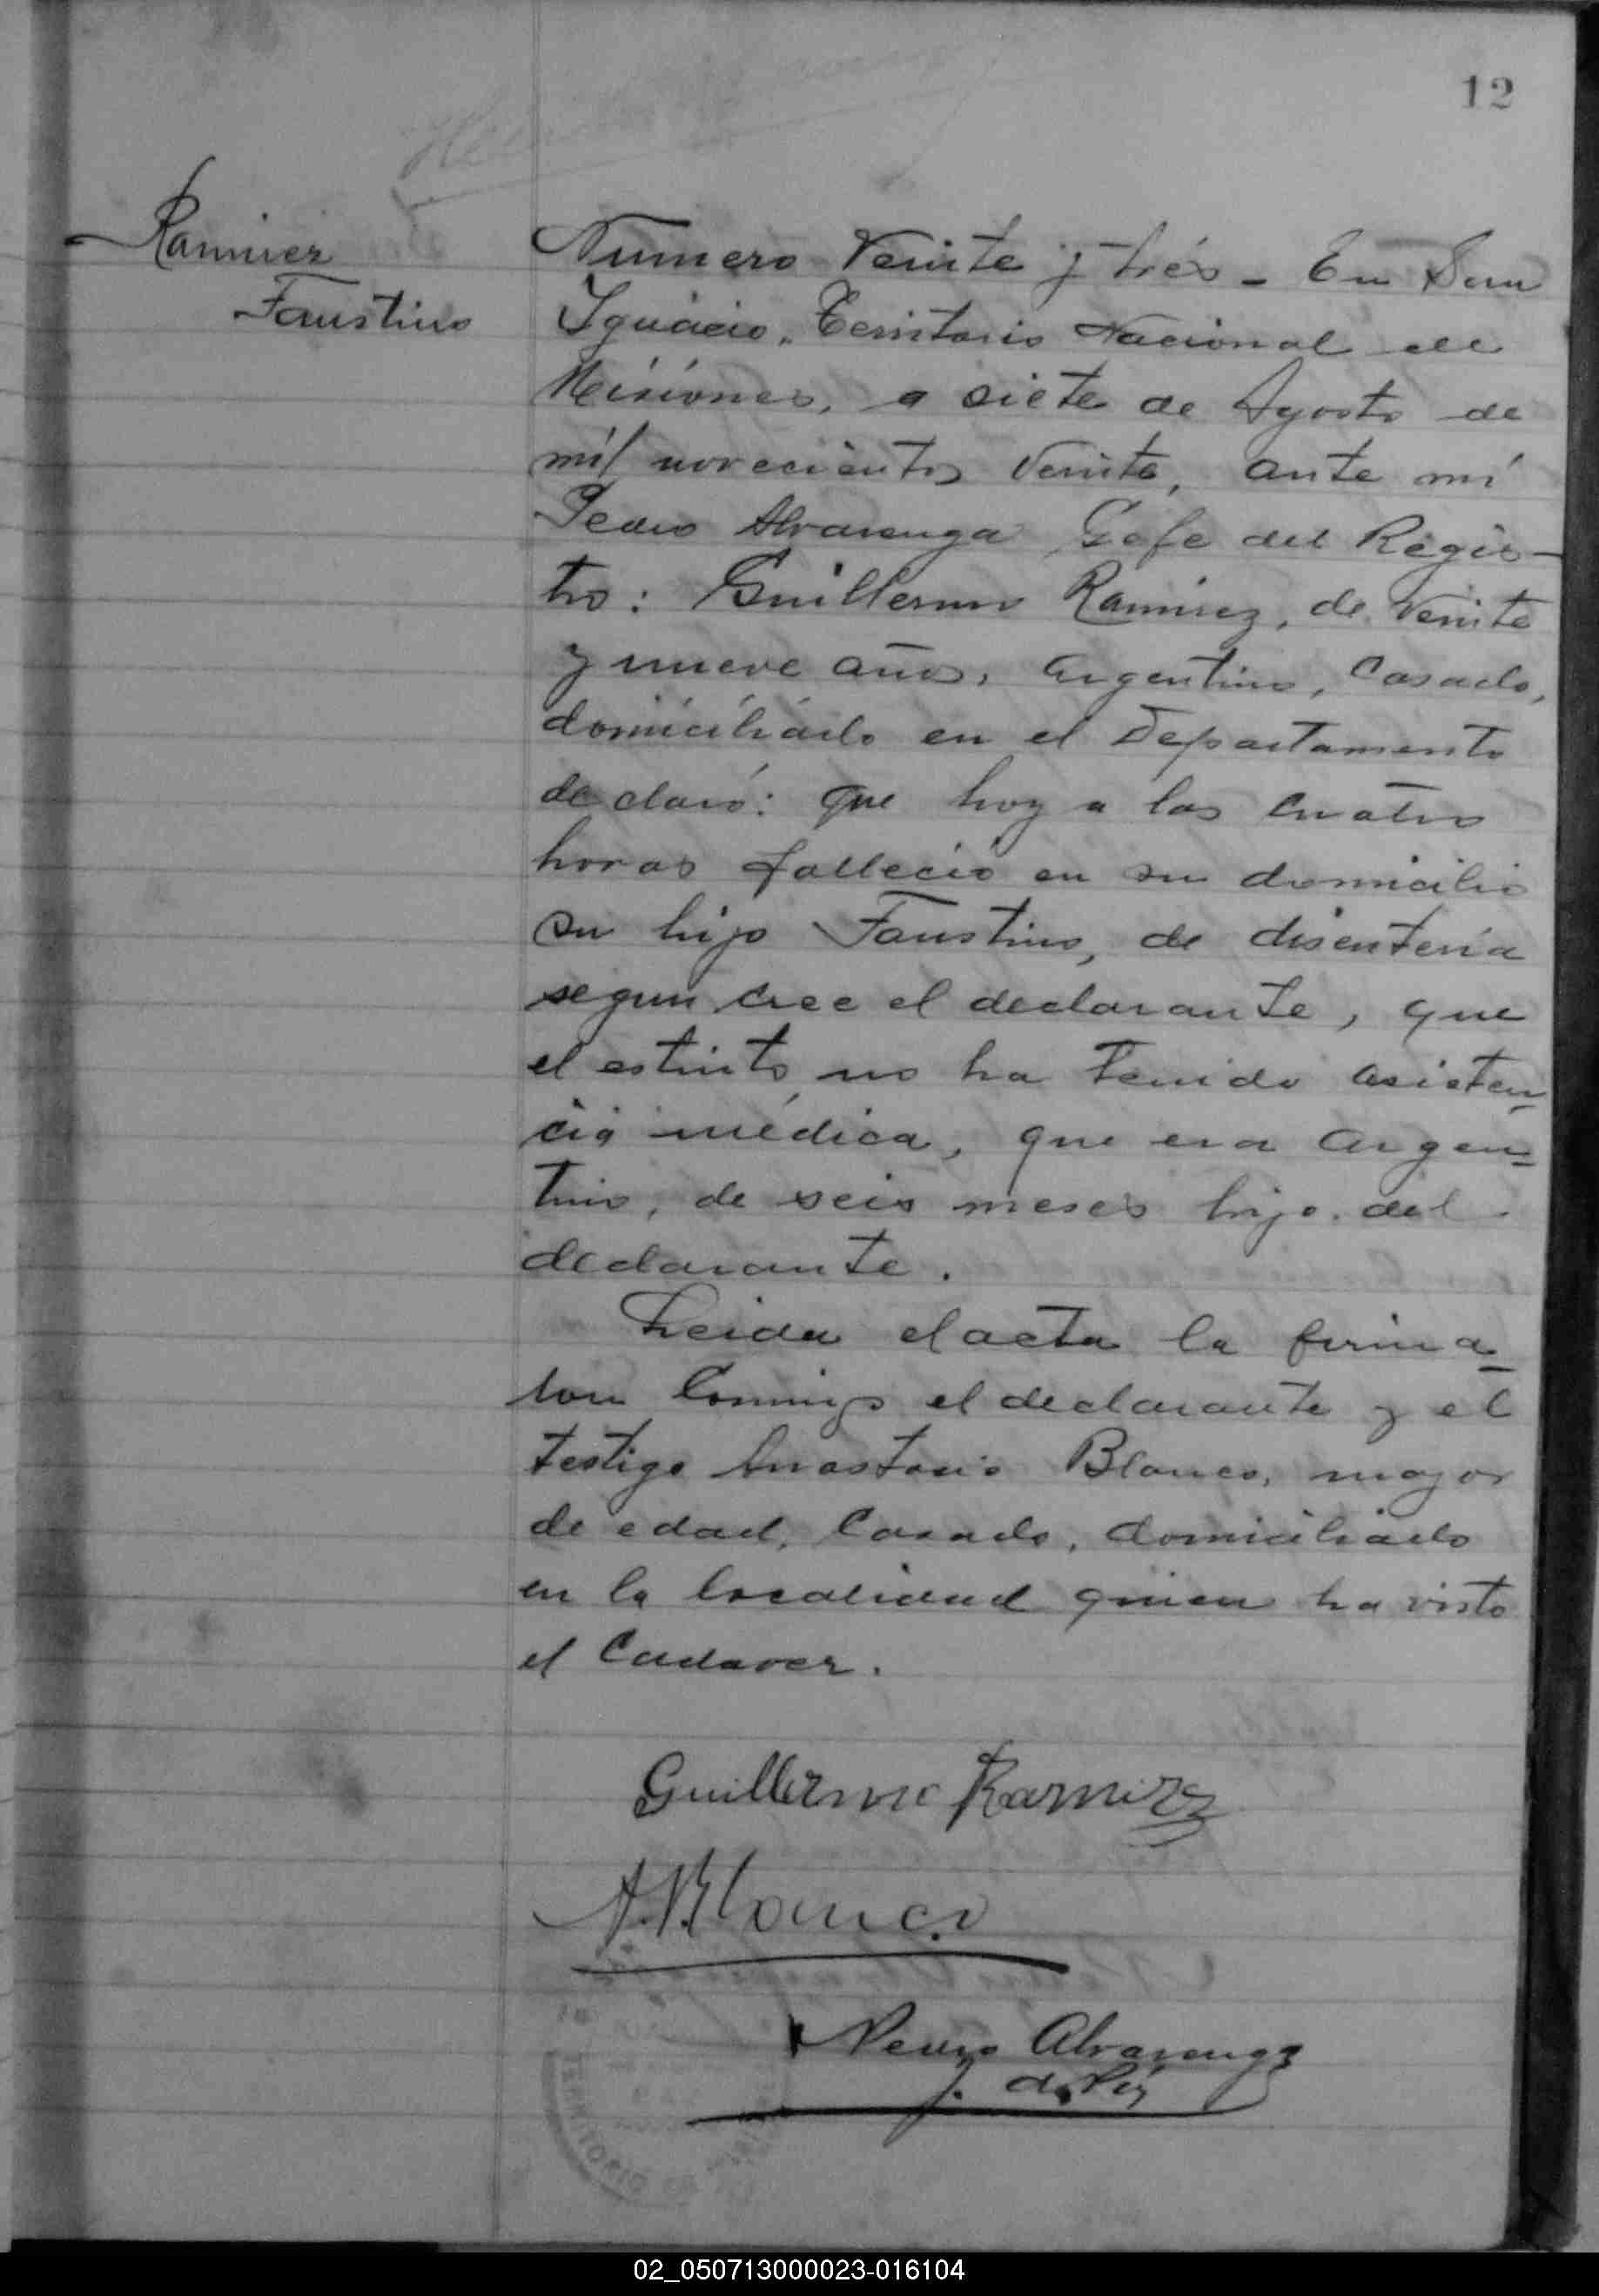 12
Ramirez
Faustino
Numero Veinte y trés - En San
Ignacio, Territorio Nacional de
Misiones, a siete de Agosto de
mil novecientos Veinte, ante mi
Pedro Alvarenga Gefe del Regis-
tro: Guillermo Ramirez, de Veinte
y nueve años, argentino, Casado,
domiciliado en el Departamento
declaró: Que hoy a las cuatro
horas falleció en su domicilio
su hijo Faustino, de disentería
segun cree el declarante, que
el estinto no ha tenido asisten-
cia médica, que era argen-
tino, de seis meses hijo del
declarante.
Leida el acta la firma-
ron Conmigo el declarante y el
testigo Anastasio Blanco, mayor
de edad, Casado, domiciliado
en la localidad quien ha visto
el Cadaver.
Guillermo Ramirez
A. Blanco
Pedro Alvarenga
J. de
TERRITORIO
02_050713000023-016104